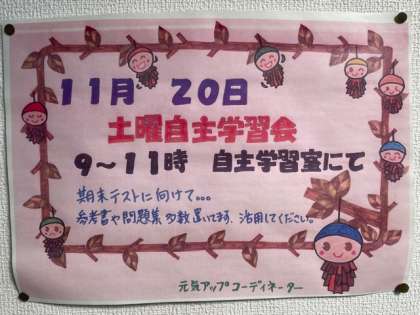 11月　20日
土曜自主学習会
9～11時　自主学習室にて
期末テストに向けて。。。
参考書や問題集多数置いてます、活用してください。
元気アップコーディネーター